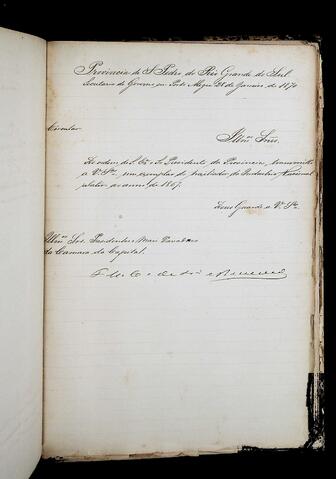 Provincia de S. Pedro do Rio Grande do Sul
Secretaria do Governo em Porto Alegre 28 de Janeiro de 1870
Circular
Illmos Snrs.
De ordem do Exmo Sr Presidente da Provincia, transmitto
a V. Sas um exemplar do Nacional
relativo ao anno de 1867.
Deus Guarde a V. Sas
Illmos Srs. Presidente e mais Vereadores
da Camara da Capital.